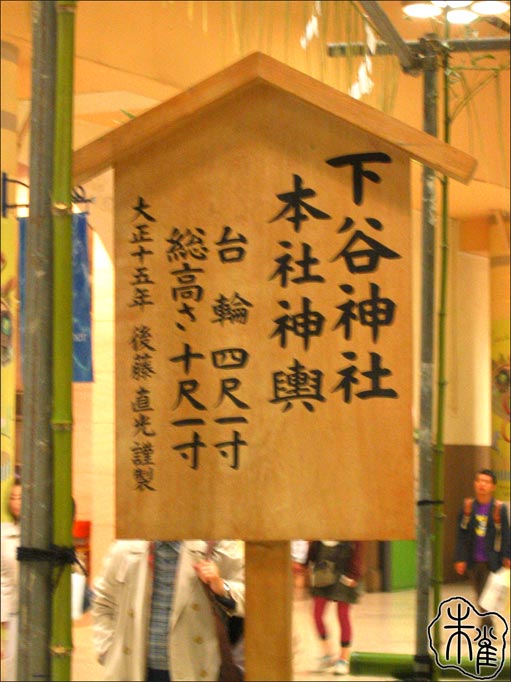 下谷神社
本社神輿
台輪 四尺一寸
総高さ 十尺一寸
大正十五年 後藤直光謹製
朱雀